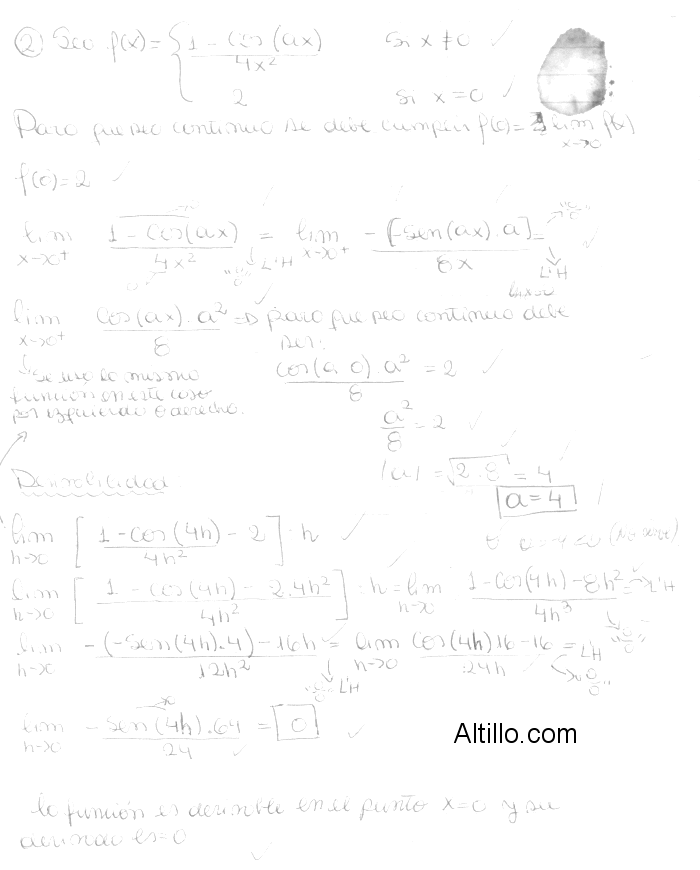 ② Sea f(x) = { 1 - cos(ax) / 4x² si x ≠ 0
2 si x = 0
Para que sea continua se debe cumplir f(0) = lim x→0 f(x)
f(0) = 2
lim x→0⁺ 1 - cos(ax) / 4x² = lim x→0⁺ -[-sen(ax).a] / 8x =
"0/0" L'H "0/0" L'H
lim x→0⁺ cos(ax).a² / 8 => para que sea continua debe
ser:
Se usa la misma
función en este caso
por izquierda o derecha.
cos(a.0).a² / 8 = 2
a² / 8 = 2
|a| = √2.8 = 4
a = 4
Derivabilidad
lim h→0 [ 1 - cos(4h) / 4h² - 2 ] : h
lim h→0 [ 1 - cos(4h) - 2.4h² / 4h² ] : h = lim h→0 1 - cos(4h) - 8h² / 4h³ = L'H
"0/0"
lim h→0 -(-sen(4h).4) - 16h / 12h² = lim h→0 cos(4h)16 - 16 / 24h = L'H
"0/0" L'H "0/0"
lim h→0 - sen(4h).64 / 24 = 0
Altillo.com
la función es derivable en el punto x=0 y su
derivada es = 0